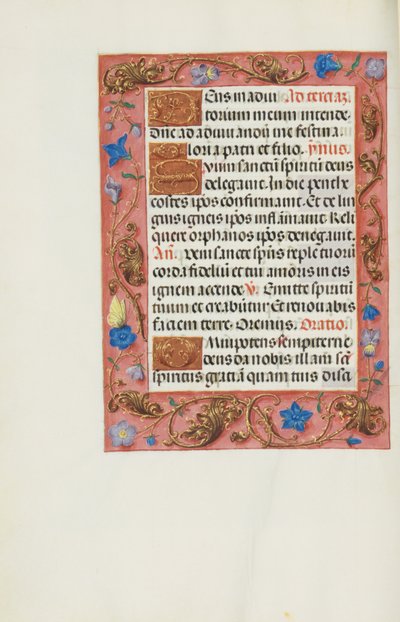 Eus in adiu Ad terciaz
torium meum intende.
Dñe ad adiuuandũ me festina
loria patri et filio. ỹnus.
vum sanctũ spiritũ deus
delegauit. In die penthe
costes ip̃os confirmauit. Et de lin
guis igneis ip̃os inflamauit. Reli
quere orphanos ip̃os denegauit
Añ. veni sancte sp̃us reple tuorũ
corda fideliũ et tui amoris in eis
ignem accende. V. Emitte spiritũ
tuum et creabũtur. Et renouabis
faciem terre. Oremus. Oratio.
Mnipotens sempiterne
deus da nobis illam sc̃i
spiritus graciã quam tuis disci